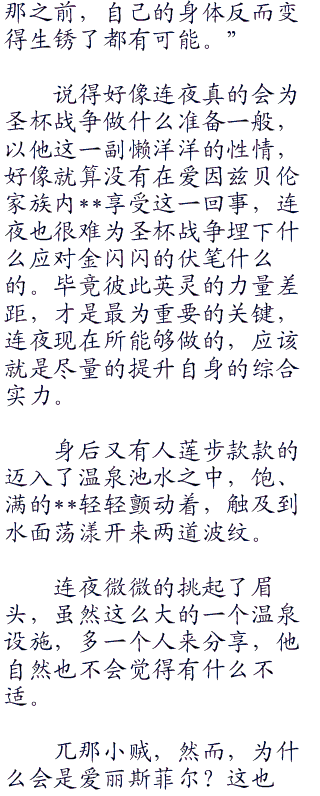 那之前，自己的身体反而变
得生锈了都有可能。”
说得好像连夜真的会为
圣杯战争做什么准备一般，
以他这一副懒洋洋的性情，
好像就算没有在爱因兹贝伦
家族内**享受这一回事，连
夜也很难为圣杯战争埋下什
么应对金闪闪的伏笔什么
的。毕竟彼此英灵的力量差
距，才是最为重要的关键，
连夜现在所能够做的，应该
就是尽量的提升自身的综合
实力。
身后又有人莲步款款的
迈入了温泉池水之中，饱、
满的**轻轻颤动着，触及到
水面荡漾开来两道波纹。
连夜微微的挑起了眉
头，虽然这么大的一个温泉
设施，多一个人来分享，他
自然也不会觉得有什么不
适。
兀那小贼，然而，为什
么会是爱丽斯菲尔？这也